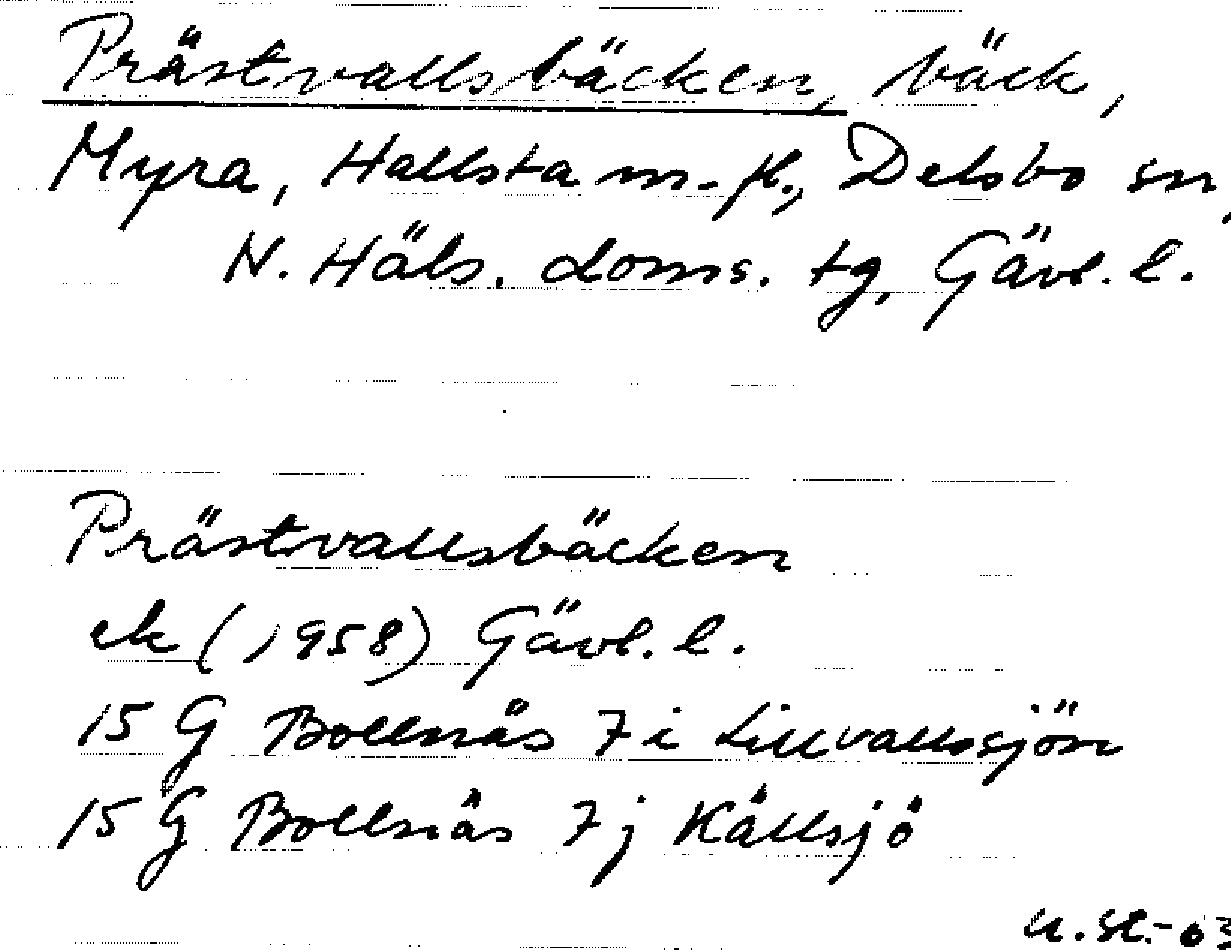 Prästvallsbäcken, bäck,
Myra, Hallsta m. fl., Delsbo sn,
N. Häls. doms. tg, Gävl. l.
Prästvallsbäcken
ek (1958) Gävl. l.
15 G Bollnäs 7 i Lillvallssjön
15 G Bollnäs 7 j Källsjö
U. St. - 63